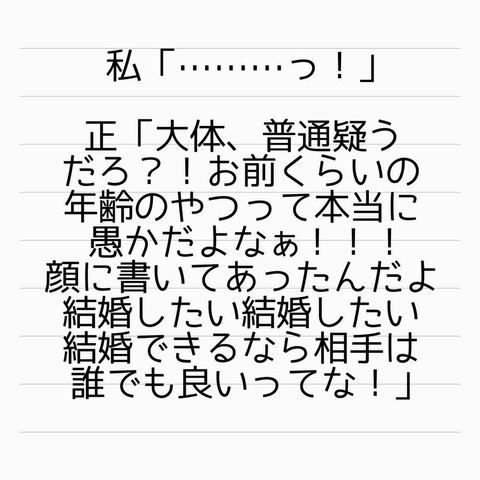 私「………っ！」
正「大体、普通疑う
だろ？！お前くらいの
年齢のやつって本当に
愚かだよなぁ！！！
顔に書いてあったんだよ
結婚したい結婚したい
結婚できるなら相手は
誰でも良いってな！」